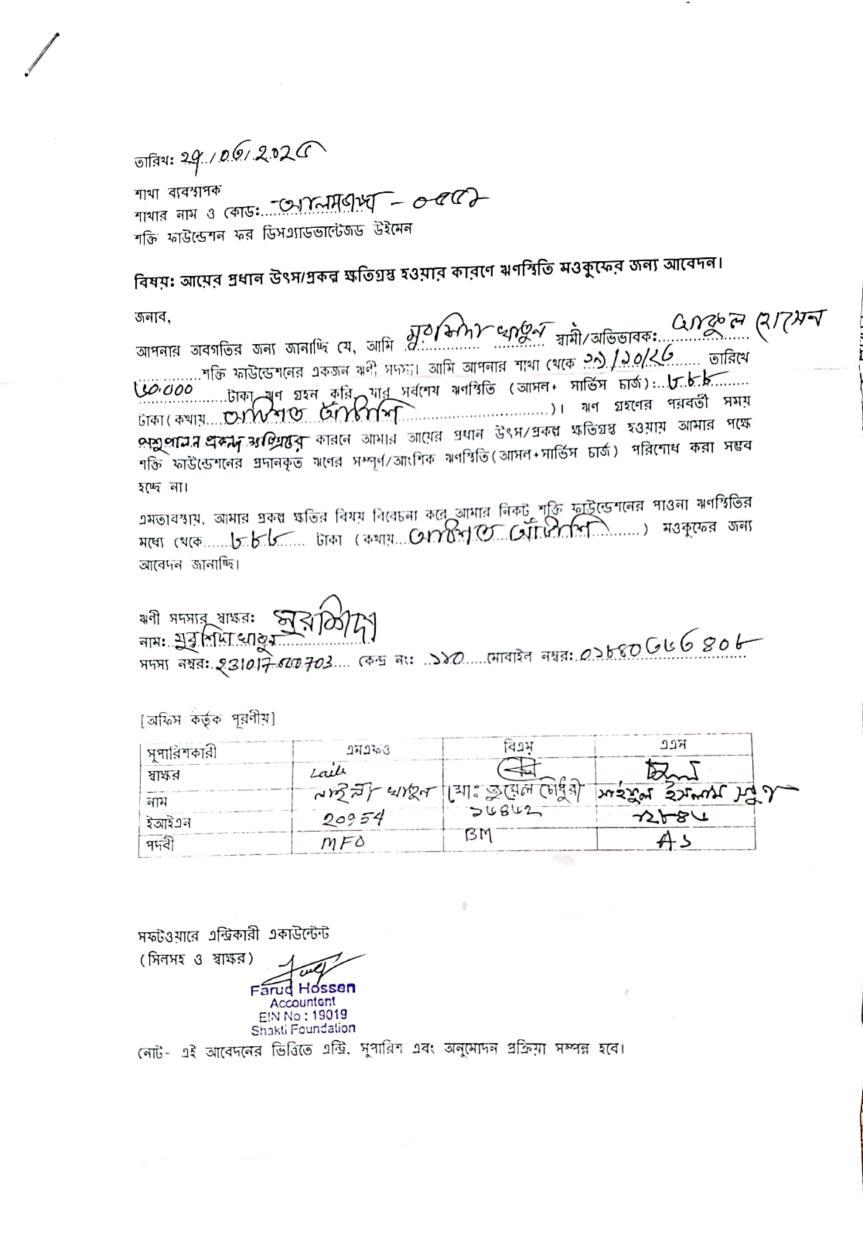 তারিখ: ২৭/০৩/২০২৫
শাখা ব্যবস্থাপক
শাখার নাম ও কোড: আলমডাঙ্গা - ০৫৫২
শক্তি ফাউন্ডেশন ফর ডিসএ্যাডভান্টেজড উইমেন
বিষয়: আয়ের প্রধান উৎস/প্রকল্প ক্ষতিগ্রস্থ হওয়ার কারণে ঋণস্থিতি মওকুফের জন্য আবেদন।
জনাব,
আপনার অবগতির জন্য জানাচ্ছি যে, আমি মুরশিদা খাতুন স্বামী/অভিভাবক: হোসেন
শক্তি ফাউন্ডেশনের একজন ঋণী সদস্য। আমি আপনার শাখা থেকে তারিখে
৬০,০০০ টাকা ঋণ গ্রহন করি, যার সর্বশেষ ঋণস্থিতি (আসল+ সার্ভিস চার্জ): ৮৮৮
টাকা (কথায় আটশত আটাশি )। ঋণ গ্রহণের পরবর্তী সময়
পশুপালন প্রকল্প ক্ষতিগ্রস্থের কারনে আমার আয়ের প্রধান উৎস/প্রকল্প ক্ষতিগ্রস্থ হওয়ায় আমার পক্ষে
শক্তি ফাউন্ডেশনের প্রদানকৃত ঋণের সম্পূর্ণ/আংশিক ঋণস্থিতি (আসল+সার্ভিস চার্জ) পরিশোধ করা সম্ভব
হচ্ছে না।
এমতাবস্থায়, আমার প্রকল্প ক্ষতির বিষয় বিবেচনা করে আমার নিকট শক্তি ফাউন্ডেশনের পাওনা ঋণস্থিতির
মধ্যে থেকে ৮৮৮ টাকা (কথায় আটশত আটাশি ) মওকুফের জন্য
আবেদন জানাচ্ছি।
ঋণী সদস্যর স্বাক্ষর: মুরশিদা
নাম: মুরশিদা খাতুন
সদস্য নম্বর: কেন্দ্র নং: ১২০ মোবাইল নম্বর:
[অফিস কর্তৃক পূরণীয়]
সুপারিশকারী এমএফও বিএম এএস
স্বাক্ষর Laile
নাম লাইলী খাতুন মো: জুয়েল চৌধুরী সাইফুল ইসলাম
ইআইএন 20954 ১৬৪৮২
পদবী MFO BM AS
সফটওয়ারে এন্ট্রিকারী একাউন্টেন্ট
(সিলসহ ও স্বাক্ষর)
Faruq Hossen
Accountant
EIN No : 19019
Shakti Foundation
নোট- এই আবেদনের ভিত্তিতে এন্ট্রি, সুপারিশ এবং অনুমোদন প্রক্রিয়া সম্পন্ন হবে।